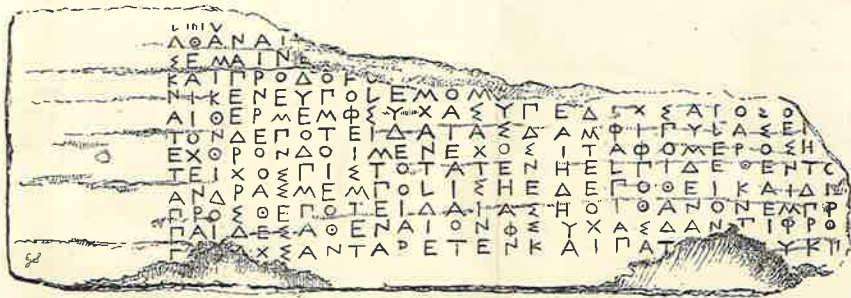 ΑΘΑΝΑΙ
ΣΕΜΑΙΝΕ
ΚΑΙΠΡΟΔΟ
ΝΙΚΕΝΕΥΠΟLΕΜΟΜ
ΑΙΘΕΡΜΕΜΦΣΥΧΑΣΥΠΕΔΕΧΣΑΤΟΣΟ
ΤΟΝΔΕΠΟΤΕΙΔΑΙΑΣΔΑΜΦΙΠΥLΑΣΕΙ
ΕΧΘΡΟΝΔΟΙΜΕΝΕΧΟΣΙΤΑΦΟΜΕΡΟΣΗ
ΤΕΙΧΟΣΠΙΣΤΟΤΑΤΕΝΗΕLΠΙΔΕΘΕΝΤΟ
ΑΝΔΡΑΣΜΕΜΠΟLΙΣΗΕΔΕΠΟΘΕΙΚΑΙΔΙ
ΠΡΟΣΘΕΠΟΤΕΙΔΑΙΑΣΗΟΙΘΑΝΟΝΕΜΠΡ
ΠΑΙΔΕΣΑΘΕΝΑΙΟΝΦΣΥΧΑΣΔΑΝΤΙΡΡΟ
ΧΣΑΝΤΑΡΕΤΕΝΚΑΙΠΑΤ ΥΚ